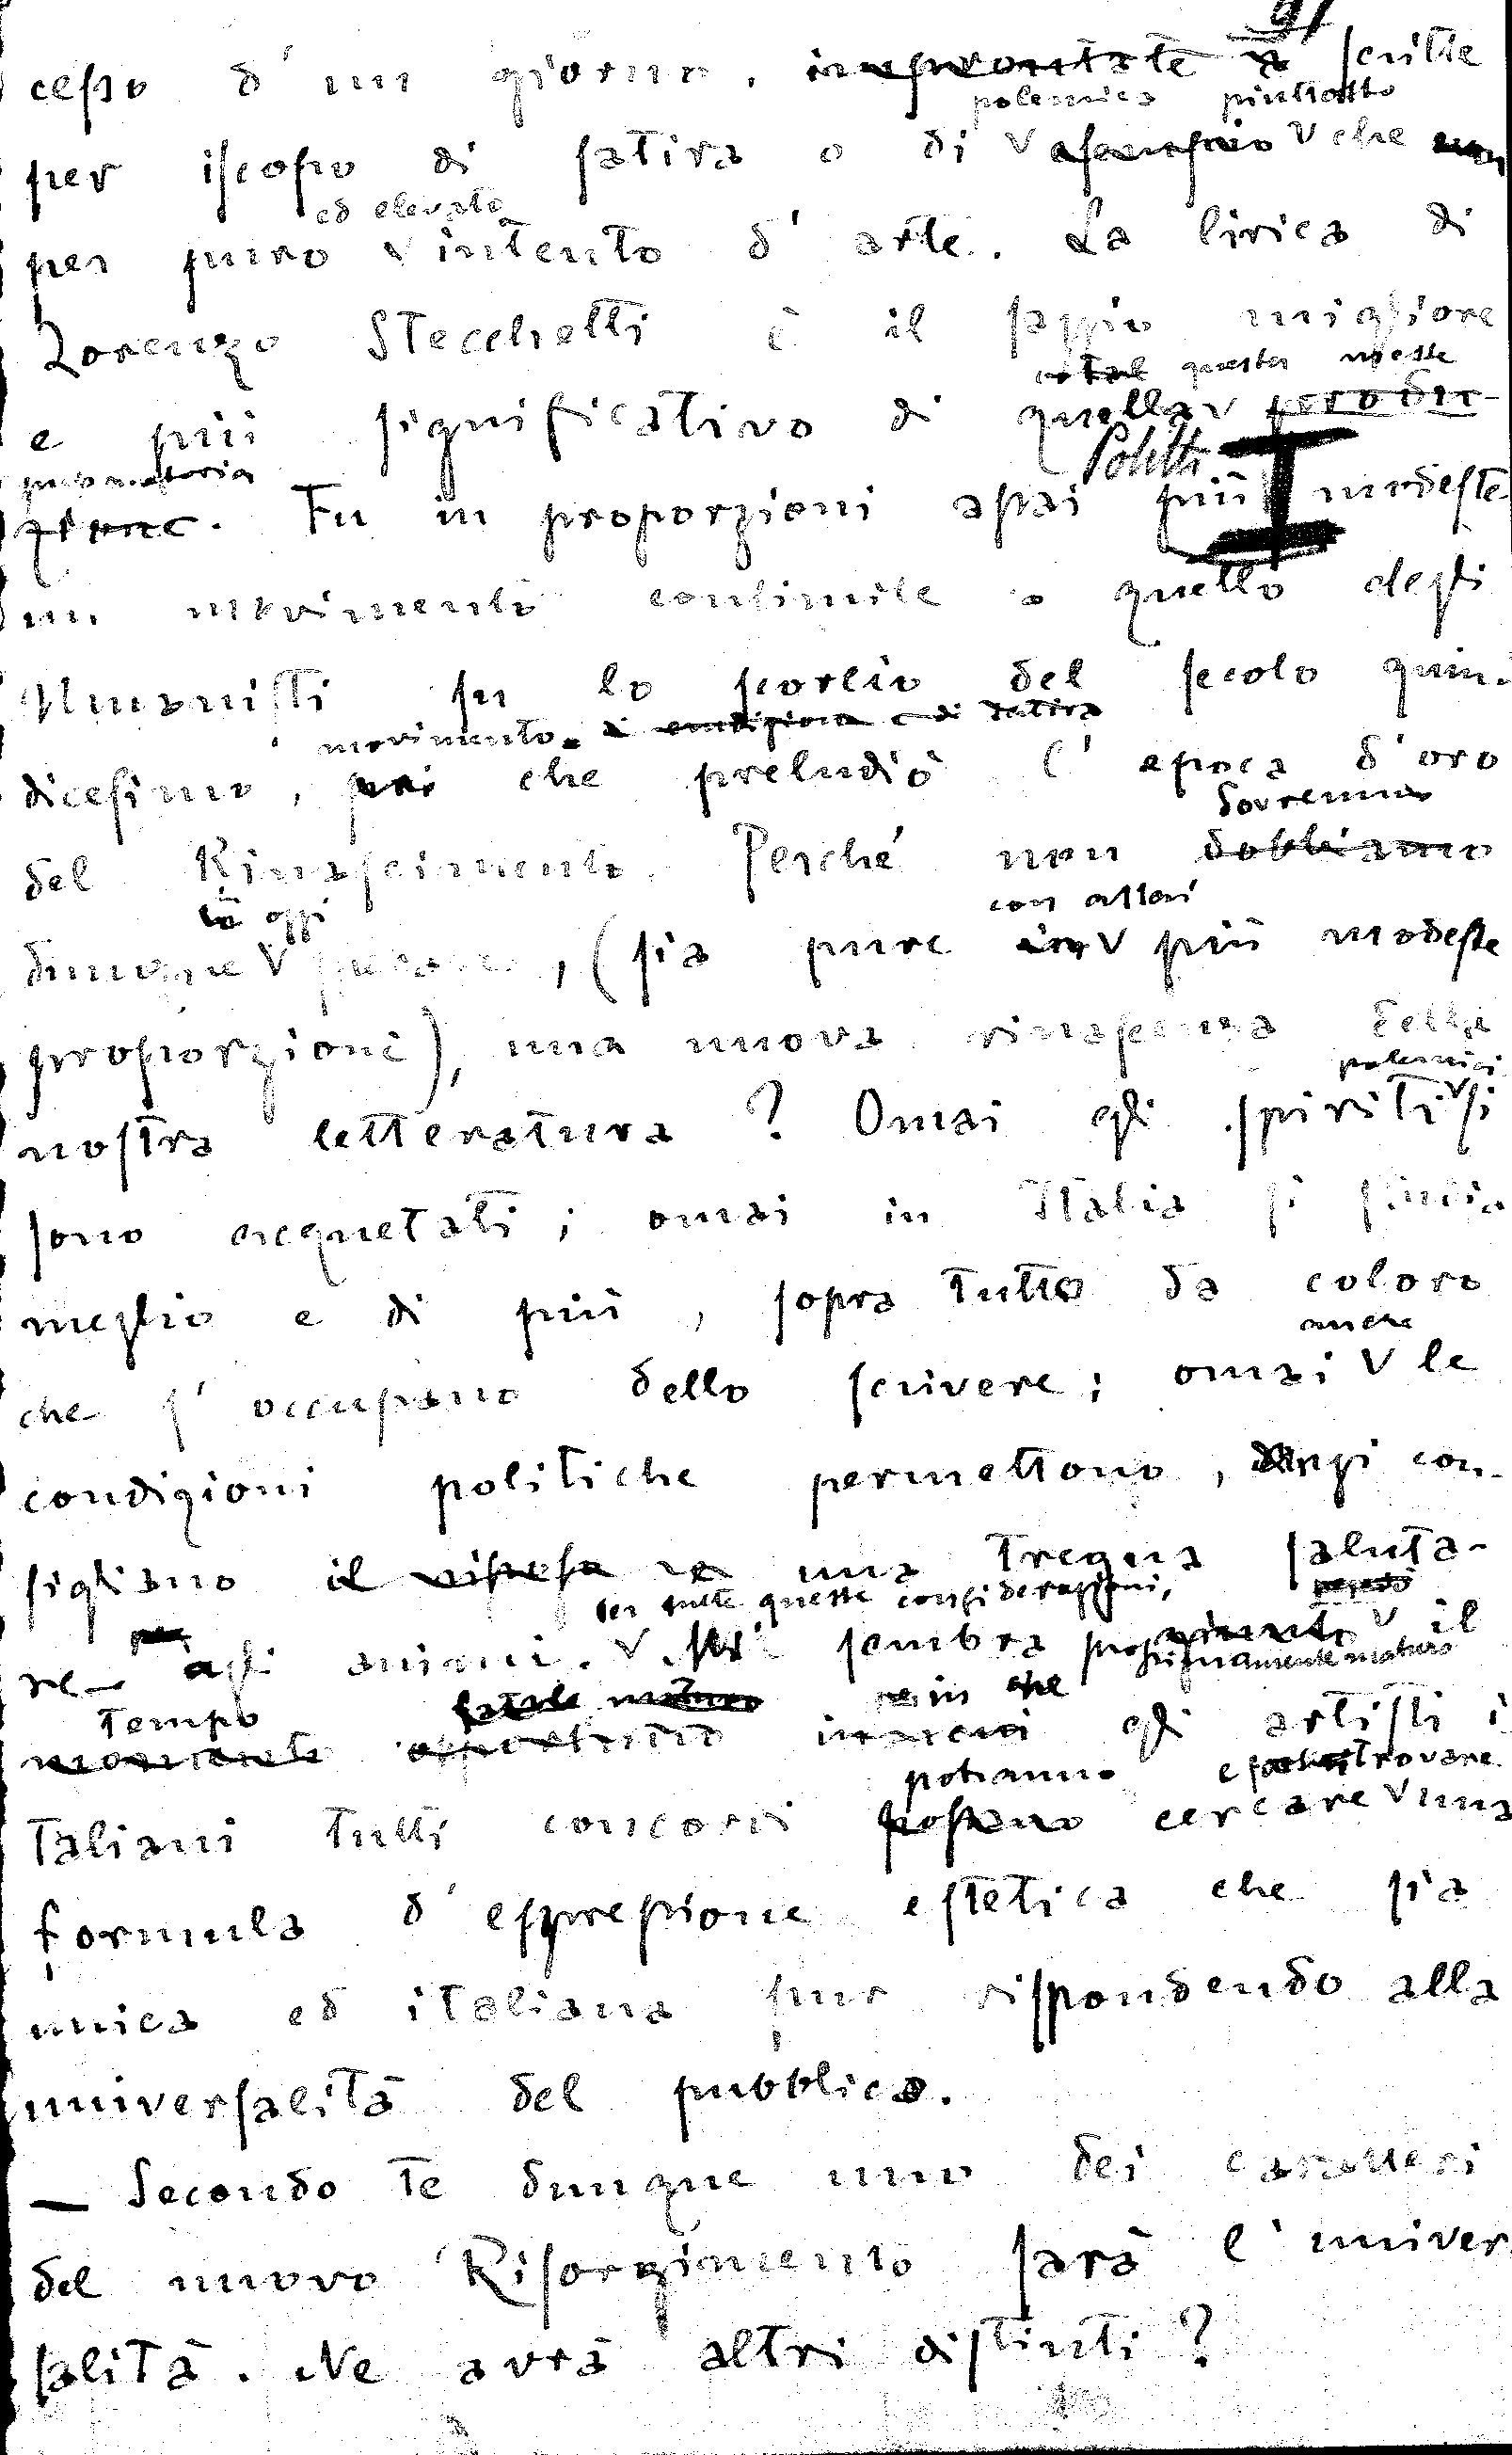 91
cesso d'un giorno, improntate a scritte
polemica piuttosto
per iscopo di satira o di che non
ed elevato
per puro intento d'arte. La lirica di
Lorenzo Stecchetti è il saggio migliore
questa messe
e più significativo di quella produ-
preparatoria
zione. Fu in proporzioni assai più modeste
Politti
un movimento consimile a quello degli
Umanisti su lo scorcio del secolo quin-
movimento di e di satira
dicesimo, poi che preludiò l'epoca d'oro
dovremmo
del Rinascimento. Perché non dobbiamo
oggi con attori
dunque, (sia pure in più modeste
proporzioni), una nuova rinascenza della
polemici
nostra letteratura? Omai gli spiriti si
sono acquetati; omai in Italia si studia
meglio e di più, sopra tutto da coloro
anche
che s'occupano dello scrivere; omai le
condizioni politiche permettono, anzi con-
sigliano il una tregua saluta-
per tutte queste considerazioni,
re agli animi. Mi sembra il
propriamente maturo
tempo in che
momento opportuno in cui gli artisti i
potranno e trovare
taliani tutti concordi possano cercare una
formula d'espressione estetica che sia
unica ed italiana pur rispondendo alla
universalità del pubblico.
— Secondo te dunque uno dei caratteri
del nuovo Risorgimento sarà l'univer
salità. Ne avrà altri distinti?